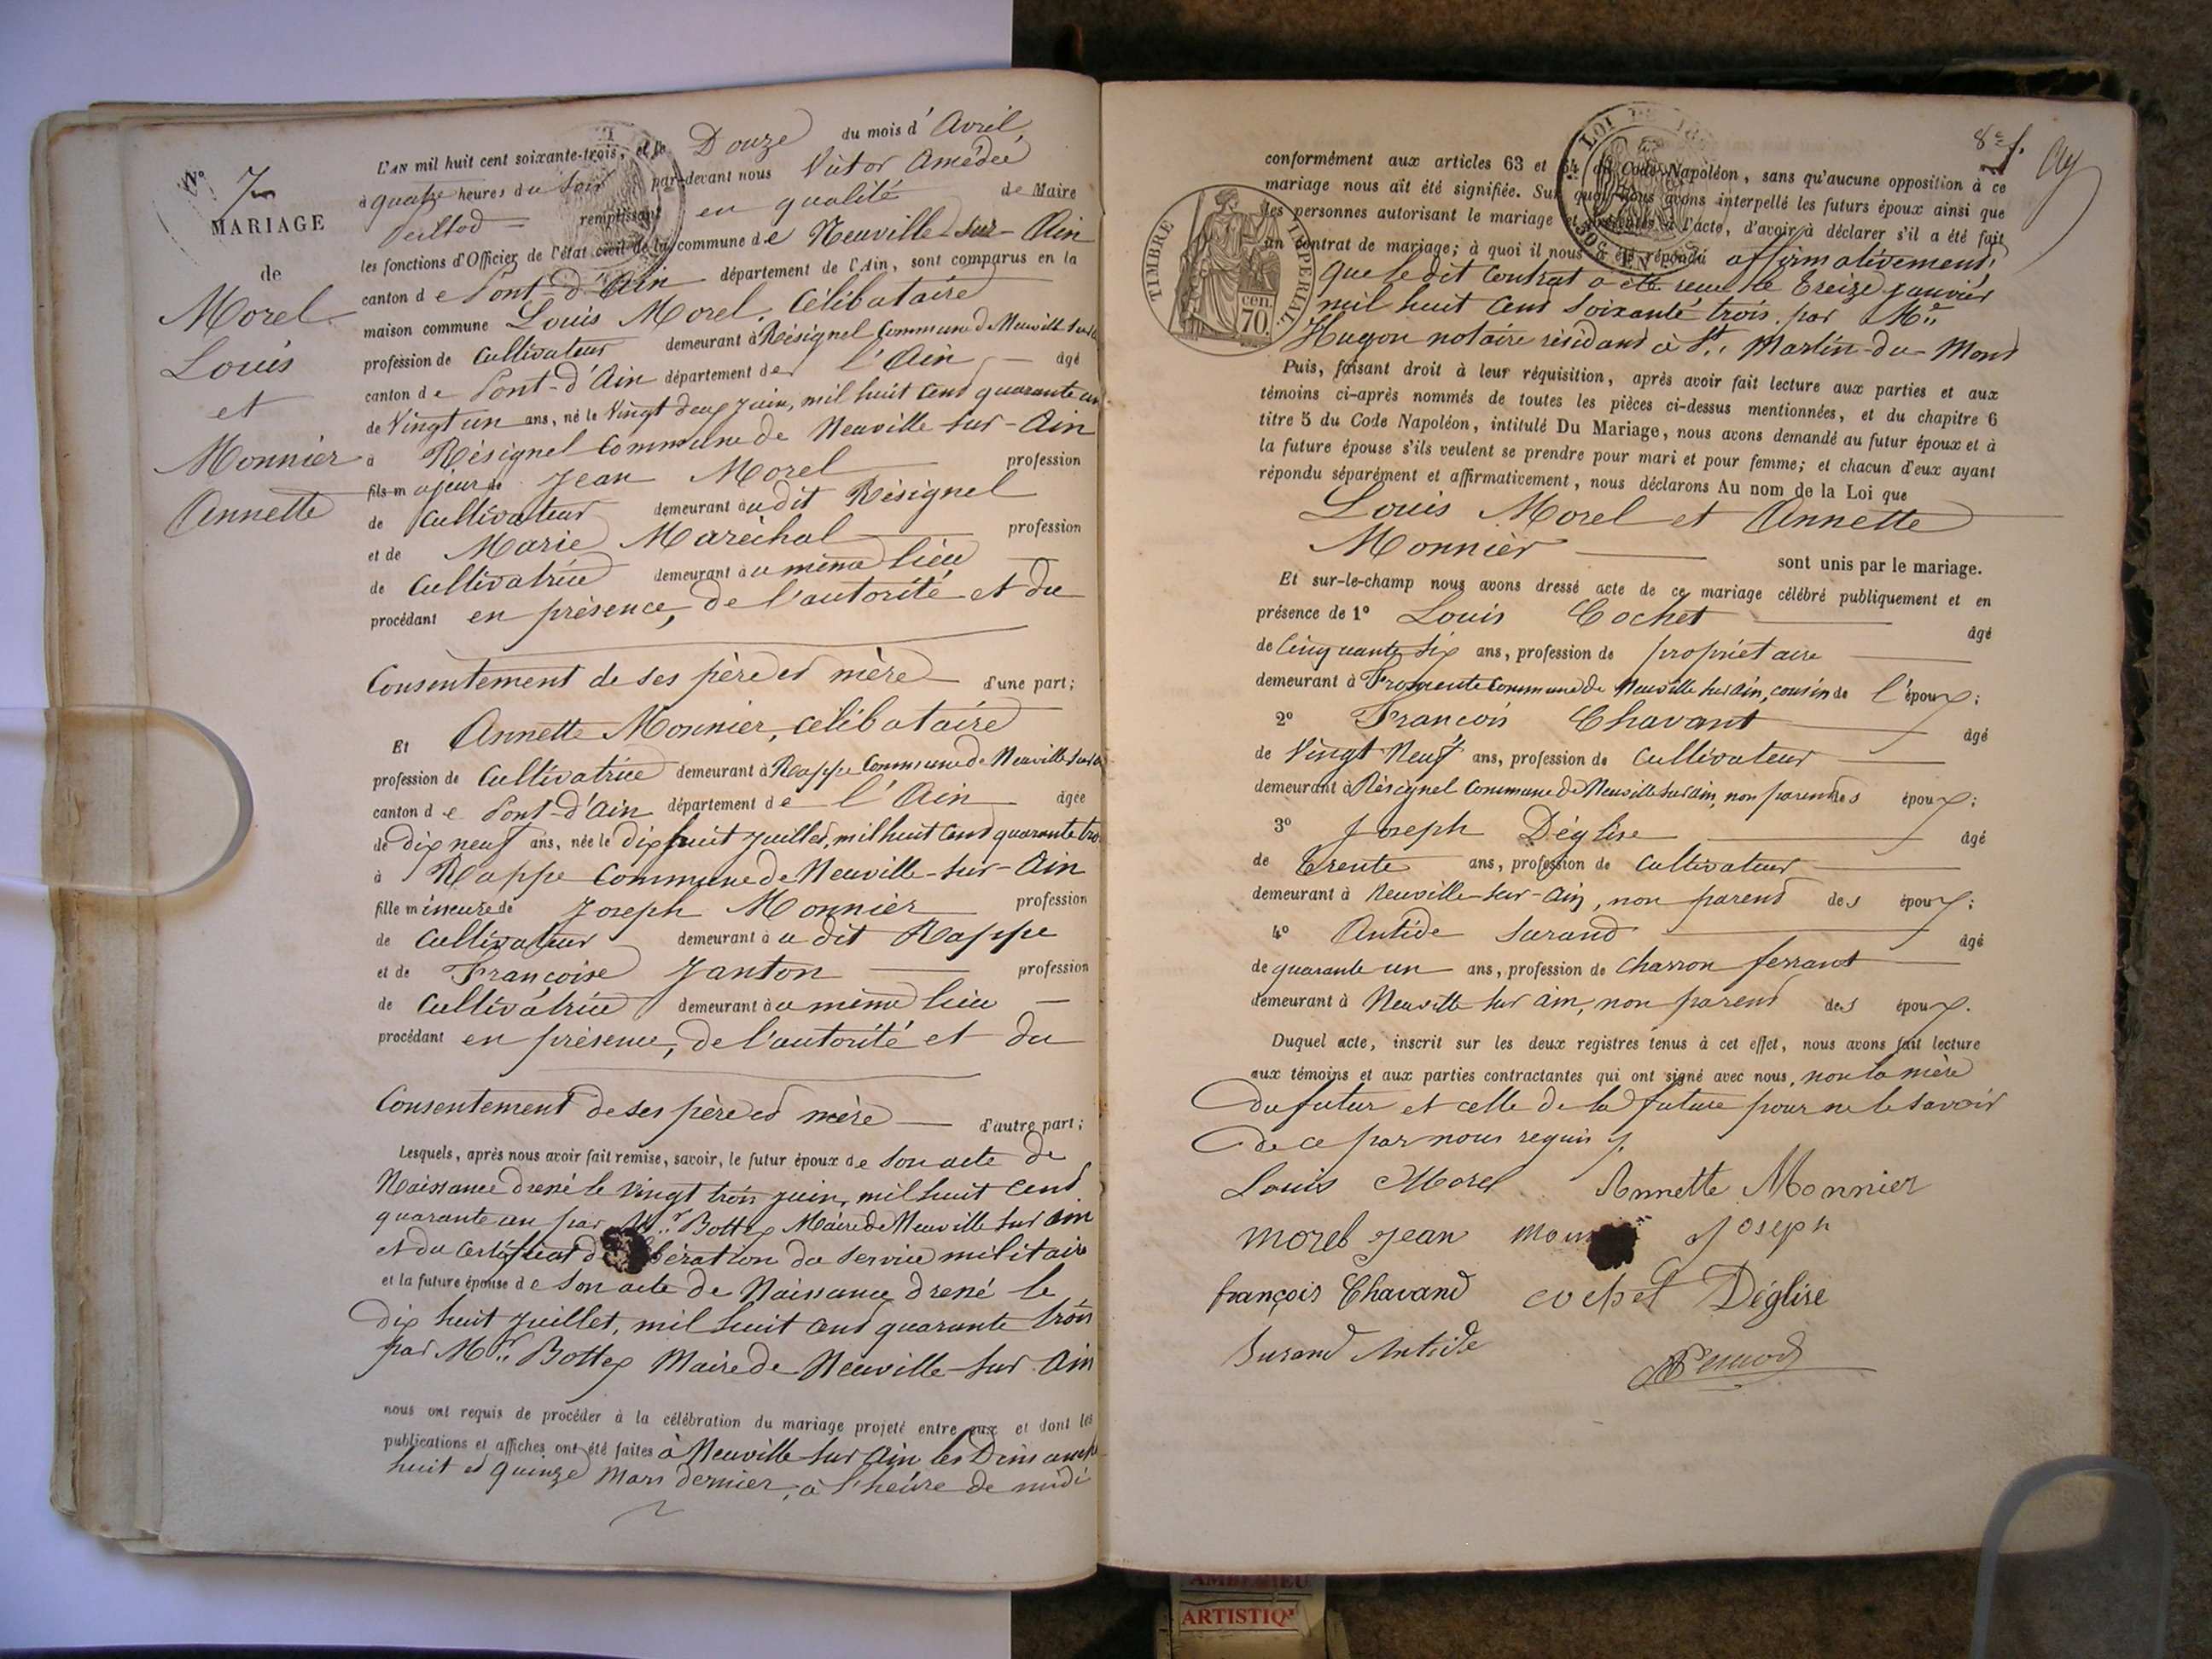 N° 7
MARIAGE
de
Morel
Louis
et
Monnier
Annette
L'AN mil huit cent soixante-trois, et le Douze du mois d'Avril
à quatre heures du soir par-devant nous Victor Amédée
remplissant en qualité de Maire
les fonctions d'Officier de l'état civil de la commune de Neuville-sur-Ain
canton de Pont-d'Ain département de l'Ain, sont comparus en la
maison commune Louis Morel, Célibataire
profession de Cultivateur demeurant à Résignel Commune de Neuville sur
canton de Pont-d'Ain département de l'Ain âgé
de Vingt un ans, né le Vingt deux Juin, mil huit cent quarante un
à Résignel Commune de Neuville-sur-Ain
fils majeur de Jean Morel profession
de Cultivateur demeurant audit Résignel
et de Marie Maréchal profession
de Cultivatrice demeurant au même lieu
procédant en présence, de l'autorité et du
Consentement de ses père et mère d'une part;
Et Annette Monnier, célibataire
profession de Cultivatrice demeurant à Rappe Commune de Neuville sur
canton de Pont-d'Ain département de l'Ain âgée
de dix neuf ans, née le dix huit Juillet, mil huit cent quarante trois
à Rappe Commune de Neuville-sur-Ain
fille mineure de Joseph Monnier profession
de Cultivateur demeurant audit Rappe
et de Françoise Janton profession
de Cultivatrice demeurant au même lieu
procédant en présence, de l'autorité et du
Consentement de ses père et mère d'autre part;
Lesquels, après nous avoir fait remise, savoir, le futur époux de son acte de
Naissance dressé le vingt trois juin, mil huit cent
quarante un par Mr. Bottex Maire de Neuville sur Ain
et du certificat de libération du service militaire
et la future épouse de son acte de Naissance dressé le
Dix huit Juillet, mil huit cent quarante trois
par Mr. Bottex Maire de Neuville-sur Ain
nous ont requis de procéder à la célébration du mariage projeté entre eux et dont les
publications et affiches ont été faites à Neuville sur Ain les Dimanche
huit et quinze Mars dernier, à l'heure de midi
8e f.
TIMBRE IMPÉRIAL
70 cen.
conformément aux articles 63 et 64 du Code Napoléon, sans qu'aucune opposition à ce
mariage nous ait été signifiée. Sur quoi nous avons interpellé les futurs époux ainsi que
les personnes autorisant le mariage et présentes à l'acte, d'avoir à déclarer s'il a été fait
un contrat de mariage; à quoi il nous a été répondu affirmativement,
que le dit contrat a été reçu le treize janvier
mil huit cent soixante trois par Me.
Hugon notaire résidant à St. Martin-du-Mont
Puis, faisant droit à leur réquisition, après avoir fait lecture aux parties et aux
témoins ci-après nommés de toutes les pièces ci-dessus mentionnées, et du chapitre 6
titre 5 du Code Napoléon, intitulé Du Mariage, nous avons demandé au futur époux et à
la future épouse s'ils veulent se prendre pour mari et pour femme; et chacun d'eux ayant
répondu séparément et affirmativement, nous déclarons Au nom de la Loi que
Louis Morel et Annette
Monnier sont unis par le mariage.
Et sur-le-champ nous avons dressé acte de ce mariage célébré publiquement et en
présence de 1° Louis Cochet âgé
de Cinquante six ans, profession de propriétaire
demeurant à Fromente Commune de Neuville sur Ain, cousin de l'époux;
2° François Chavant âgé
de Vingt Neuf ans, profession de Cultivateur
demeurant à Résignel Commune de Neuville sur Ain, non parent des époux;
3° Joseph Déglise âgé
de Trente ans, profession de Cultivateur
demeurant à Neuville-sur-Ain, non parent des époux;
4° Antide Surand âgé
de quarante un ans, profession de charron ferrant
demeurant à Neuville sur Ain, non parent des époux.
Duquel acte, inscrit sur les deux registres tenus à cet effet, nous avons fait lecture
aux témoins et aux parties contractantes qui ont signé avec nous, non la mère
du futur et celle de la future pour ne le savoir
de ce par nous requis
Louis Morel Annette Monnier
morel jean Joseph
françois Chavand cochet Déglise
Surand Antide
ARTISTIQ